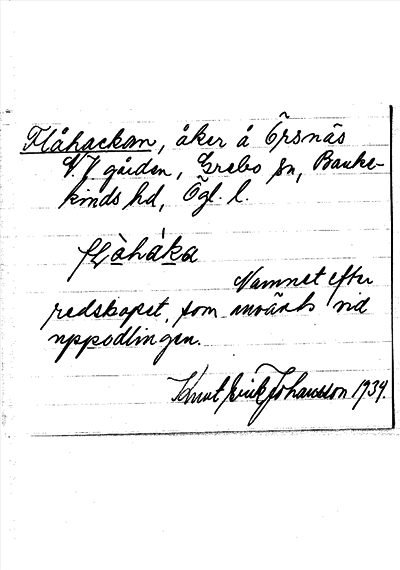 Flåhackan, åker å Örsnäs
V. J gården, Grebo sn, Banke-
kinds hd, Ögl. l.
flàhàka
Namnet efter
redskapet, som använts vid
uppodlingen.
Knut Erik Johansson 1934.